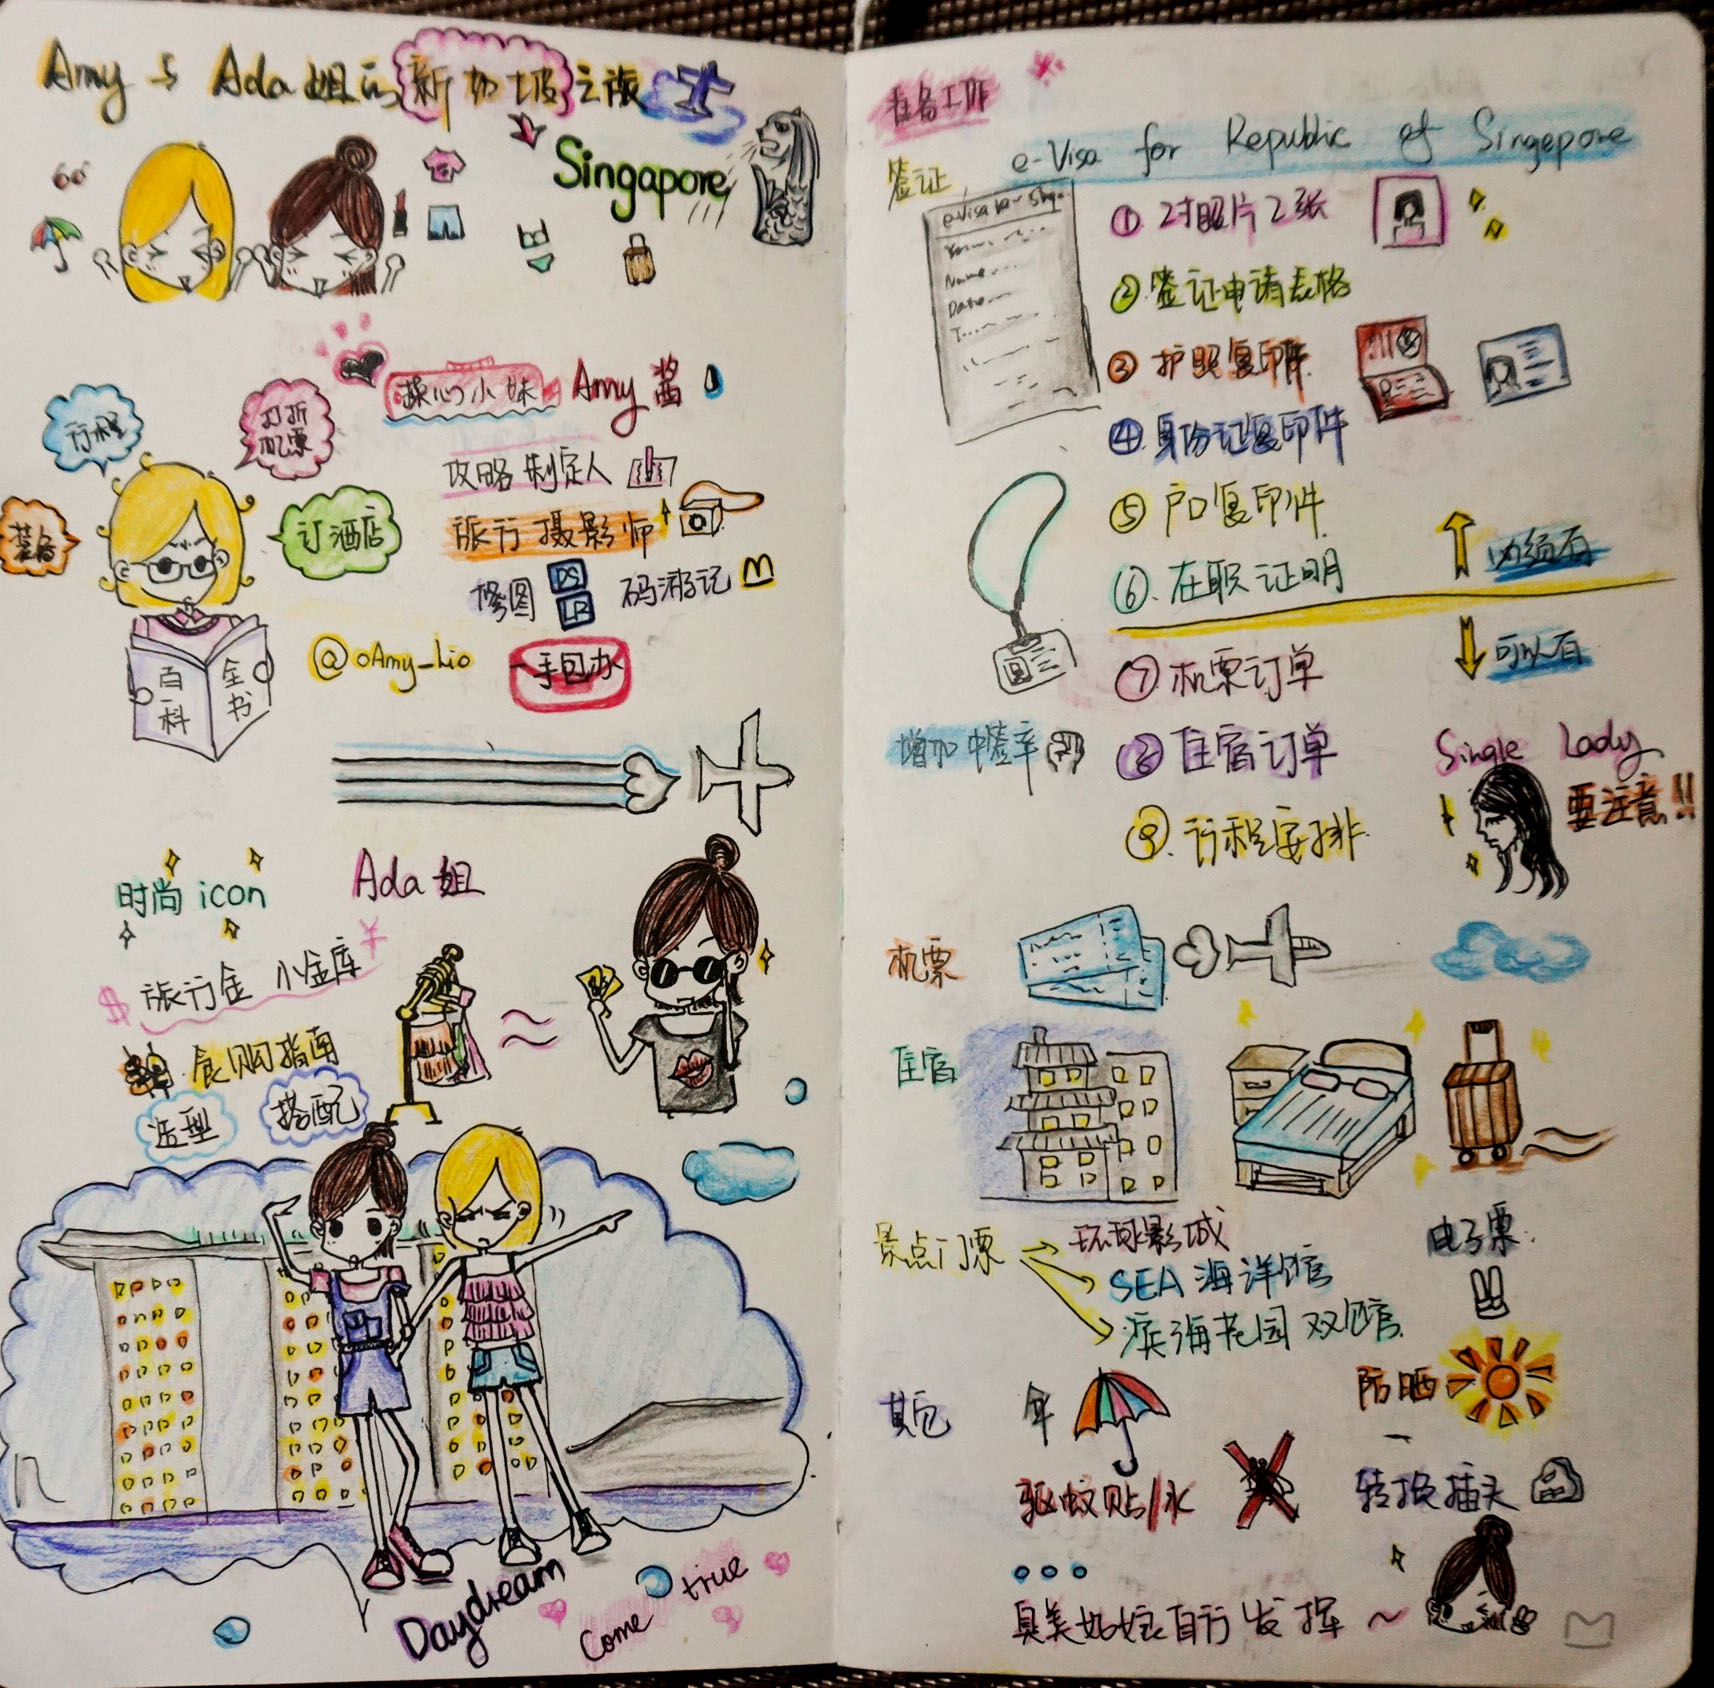 Amy与Ada姐的新加坡之旅
Singapore
操心小妹 Amy酱
行程
打折机票
攻略制定人
签证
订酒店
旅行摄影师
修图 PS LR 码游记
@oAmy_Lio 一手包办
百科全书
时尚icon Ada姐
旅行金小金库 ¥
$
食购指南
造型 搭配
Daydream
Come true
准备工作
签证 e-Visa for Republic of Singepore
e-Visa for Sing.
Name...
Date...
T...
① 2寸照片2张
② 签证申请表格
③ 护照复印件
④ 身份证复印件
⑤ 户口复印件
⑥ 在职证明
必须有
可以有
⑦ 机票订单
增加中签率 ⑧ 住宿订单
⑨ 行程安排
Single Lady
要注意!!
机票
住宿
景点门票
环球影城
SEA海洋馆
滨海花园双馆
电子票
其它 伞 防晒
驱蚊贴/水 转换插头
具美姑娘自行发挥~